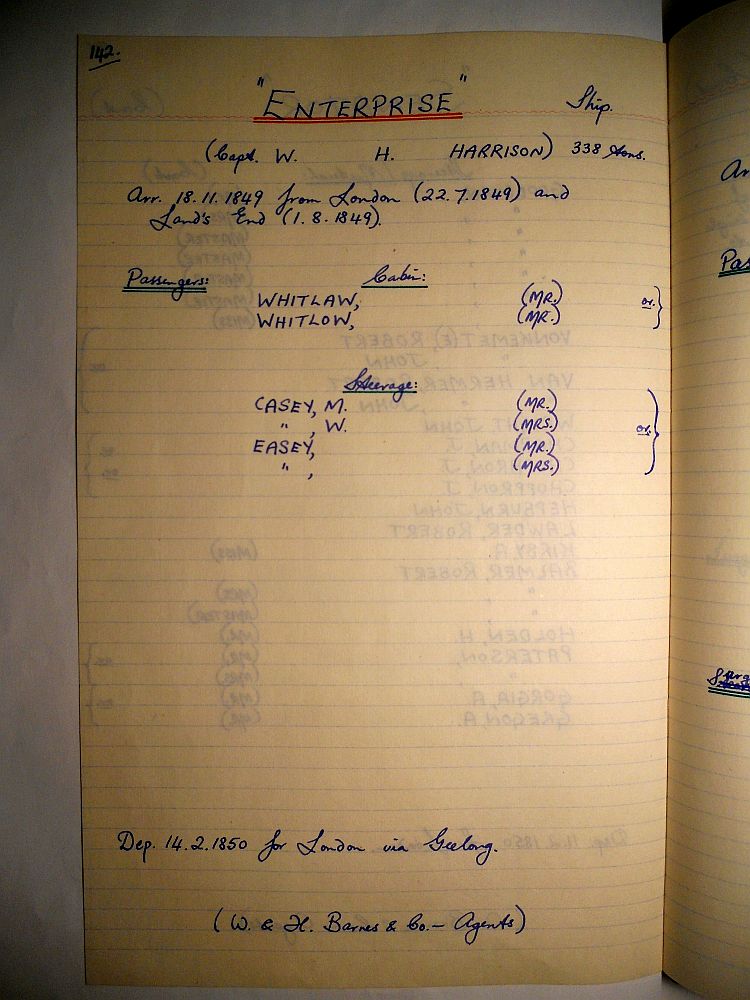 142.
"ENTERPRISE" Ship.
(Capt. W. H. HARRISON) 338 tons.
Arr. 18.11.1849 from London (22.7.1849) and
Land's End (1.8.1849).
Passengers: Cabin:
WHITLAW, (MR.)
WHITLOW, (MR.) or.
Steerage:
CASEY, M. (MR.)
" , W. (MRS.)
EASEY, (MR.) or.
" , (MRS.)
Dep. 14.2.1850 for London via Geelong.
(W. & H. Barnes & Co. - Agents)